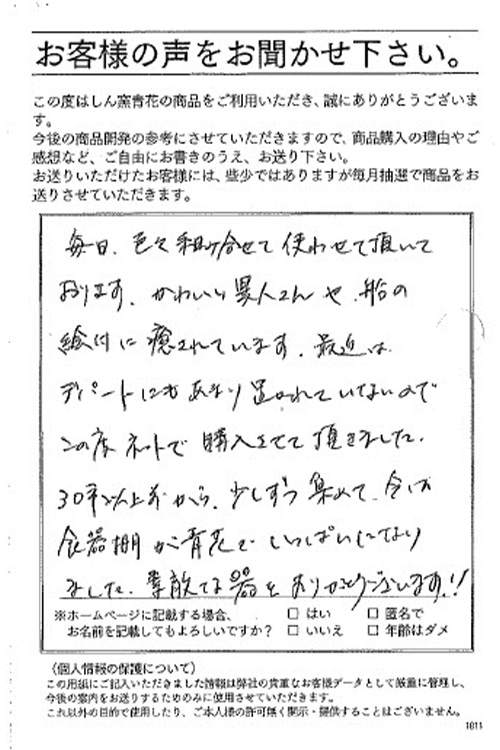 お客様の声をお聞かせ下さい。
この度はしん窯青花の商品をご利用いただき、誠にありがとうございま
す。
今後の商品開発の参考にさせていただきますので、商品購入の理由やご
感想など、ご自由にお書きのうえ、お送り下さい。
お送りいただけたお客様には、些少ではありますが毎月抽選で商品をお
送りさせていただきます。
毎日、色々組み合せて使わせて頂いて
おります。かわいい異人さんや、船の
絵付に癒されています。最近は
デパートにもあまり置かれていないので
この度ネットで購入させて頂きました。
30年以上前から、少しずつ集めて、今は
食器棚が青花でいっぱいになり
ました。素敵な器をありがとうございます!!
※ホームページに記載する場合、 □ はい □ 匿名で
お名前を記載してもよろしいですか? □ いいえ □ 年齢はダメ
〈個人情報の保護について〉
この用紙にご記入いただきました情報は弊社の貴重なお客様データとして厳重に管理し、
今後の案内をお送りするためのみに使用させていただきます。
これ以外の目的で使用したり、ご本人様の許可無く開示・提供することはございません。
1611